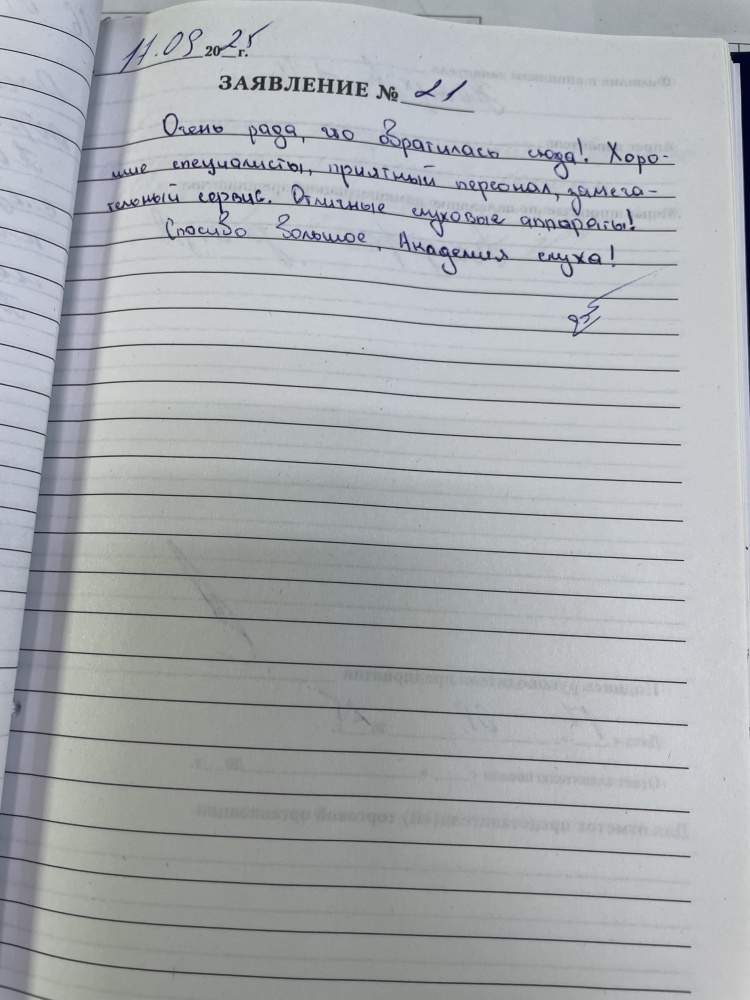 11.09 2025 г.
ЗАЯВЛЕНИЕ № 21
Очень рада, что обратилась сюда! Хоро-
шие специалисты, приятный персонал, замеча-
тельный сервис. Отличные слуховые аппараты!
Спасибо большое, Академия слуха!